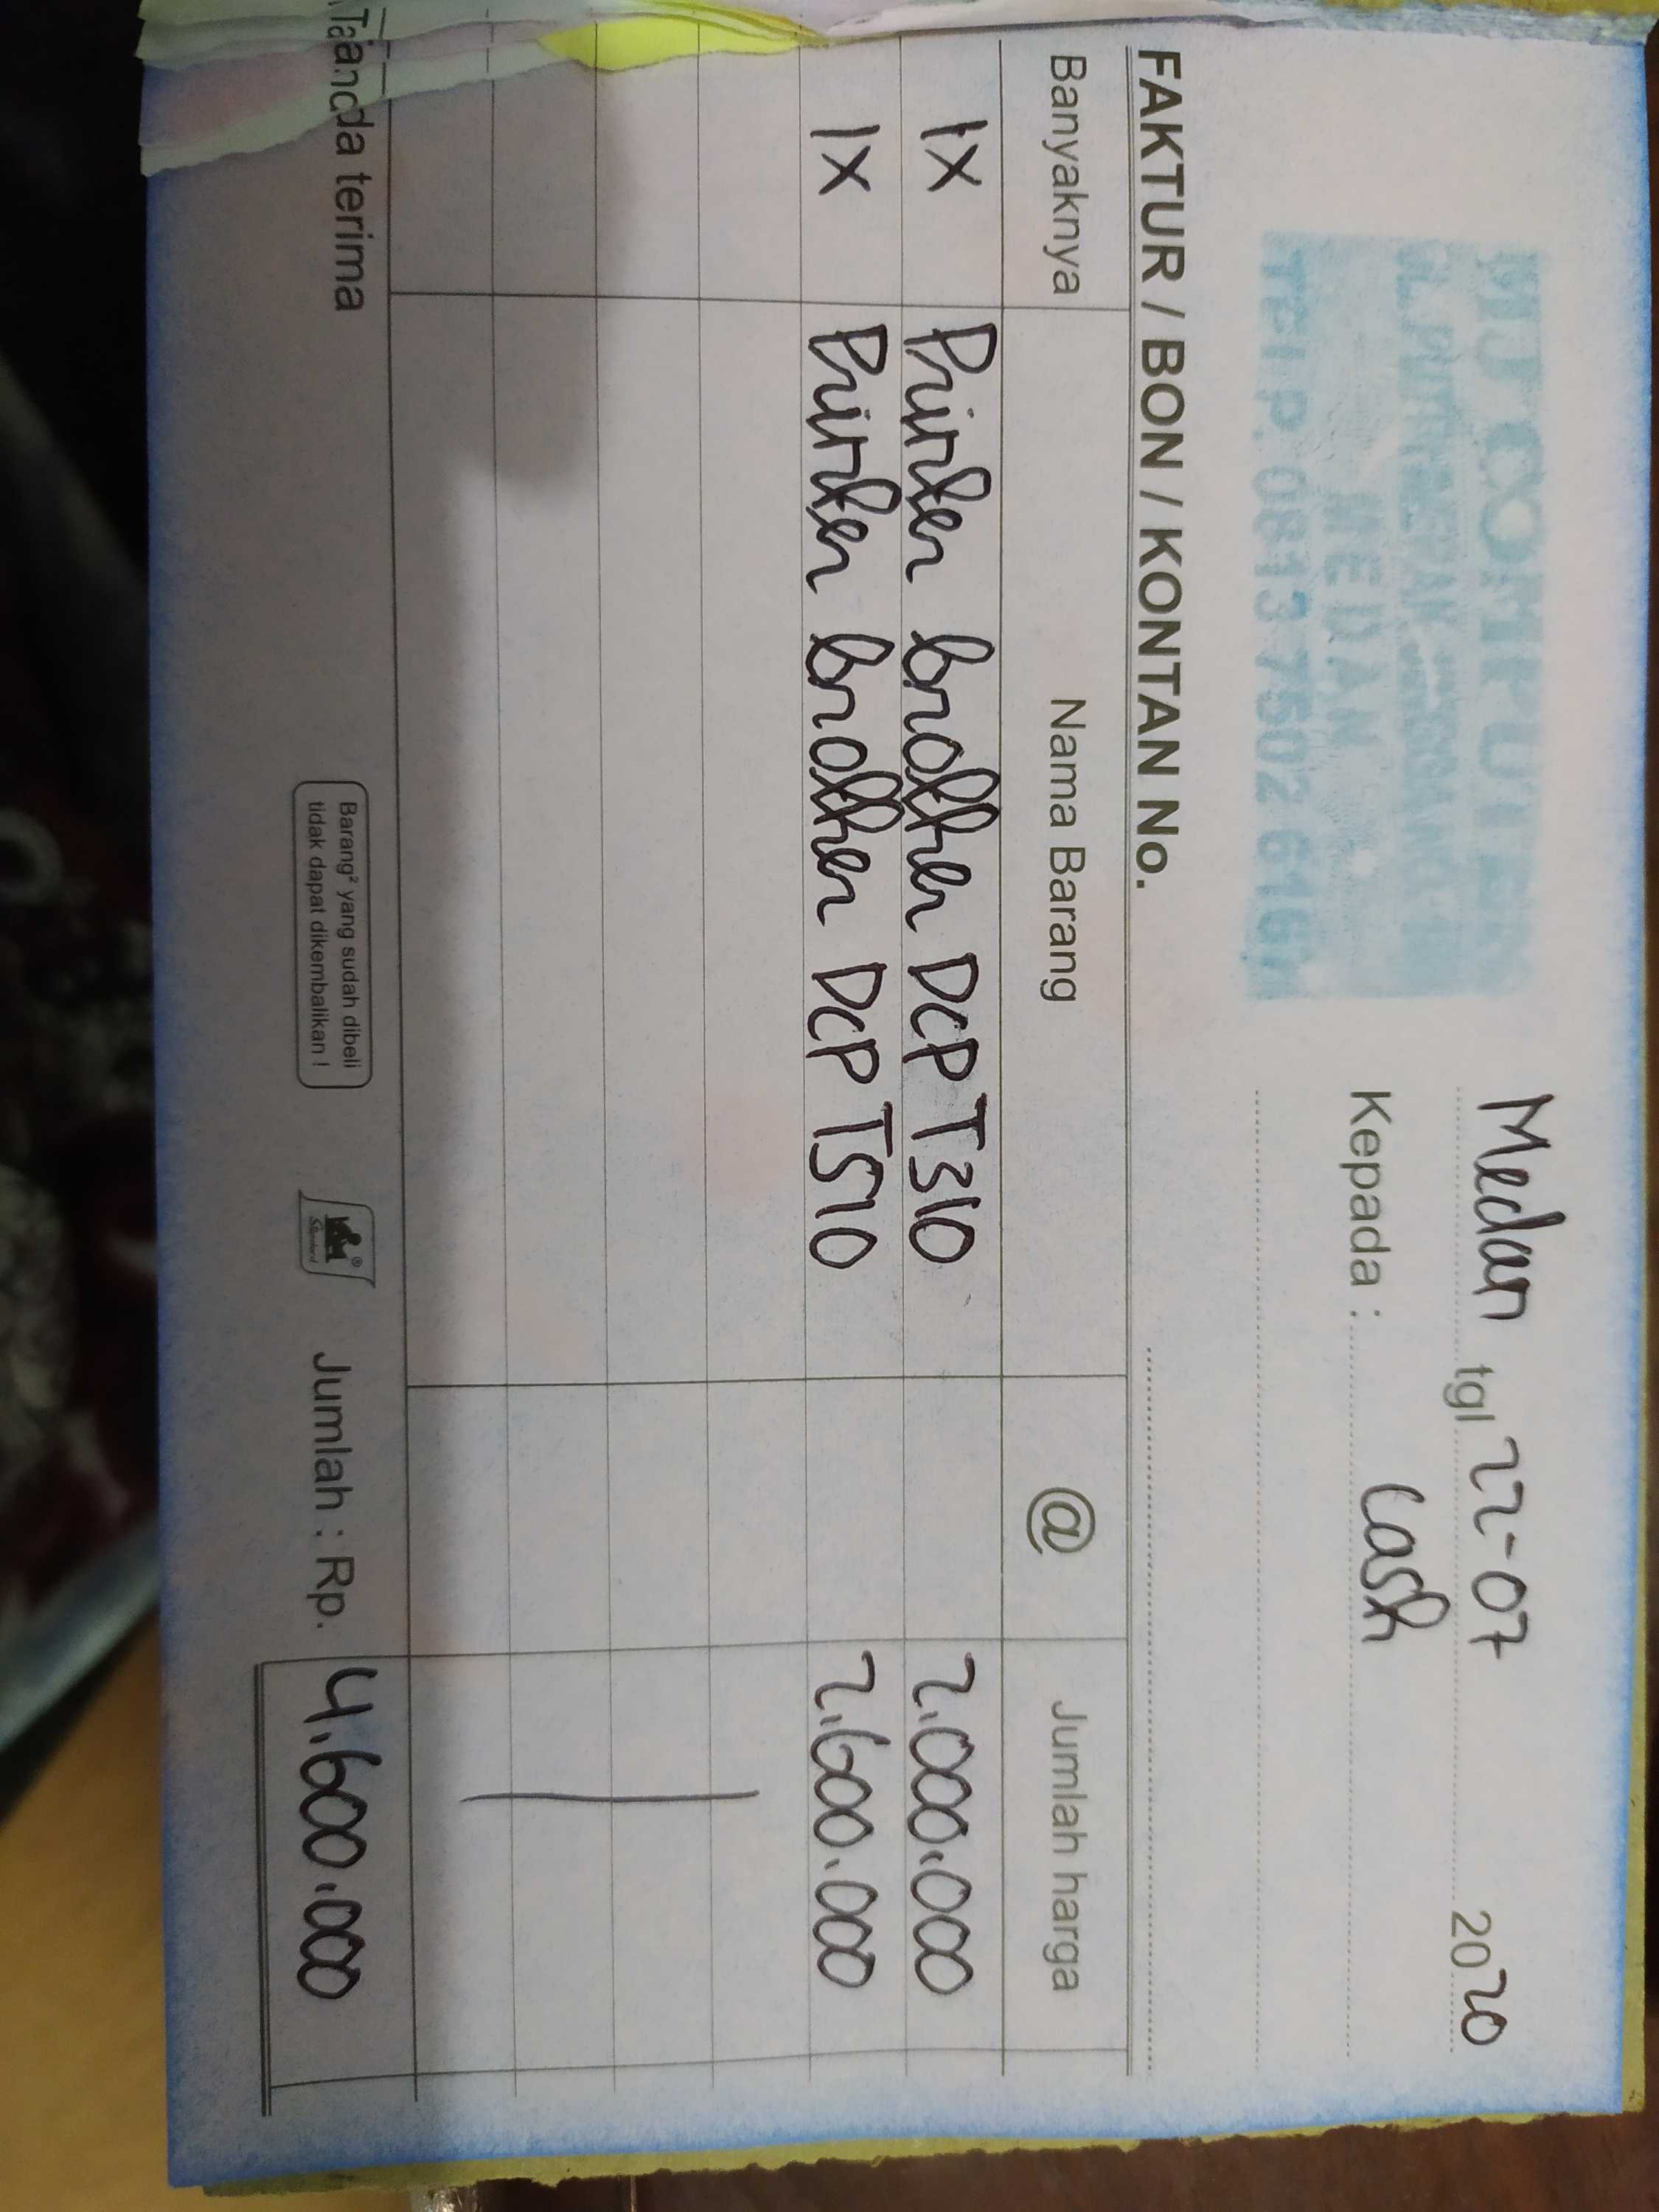 MJ COMPUTER
MEDAN
Telp. 0813 7502 616
Medan tgl 22-07 2020
Kepada : Cash
FAKTUR / BON / KONTAN No.
Banyaknya Nama Barang @ Jumlah harga
1x Printer brother DCP T310 2.000.000
1x Printer brother DCP T510 2.600.000
Tanda terima
Barang² yang sudah dibeli
tidak dapat dikembalikan !
Jumlah : Rp. 4.600.000